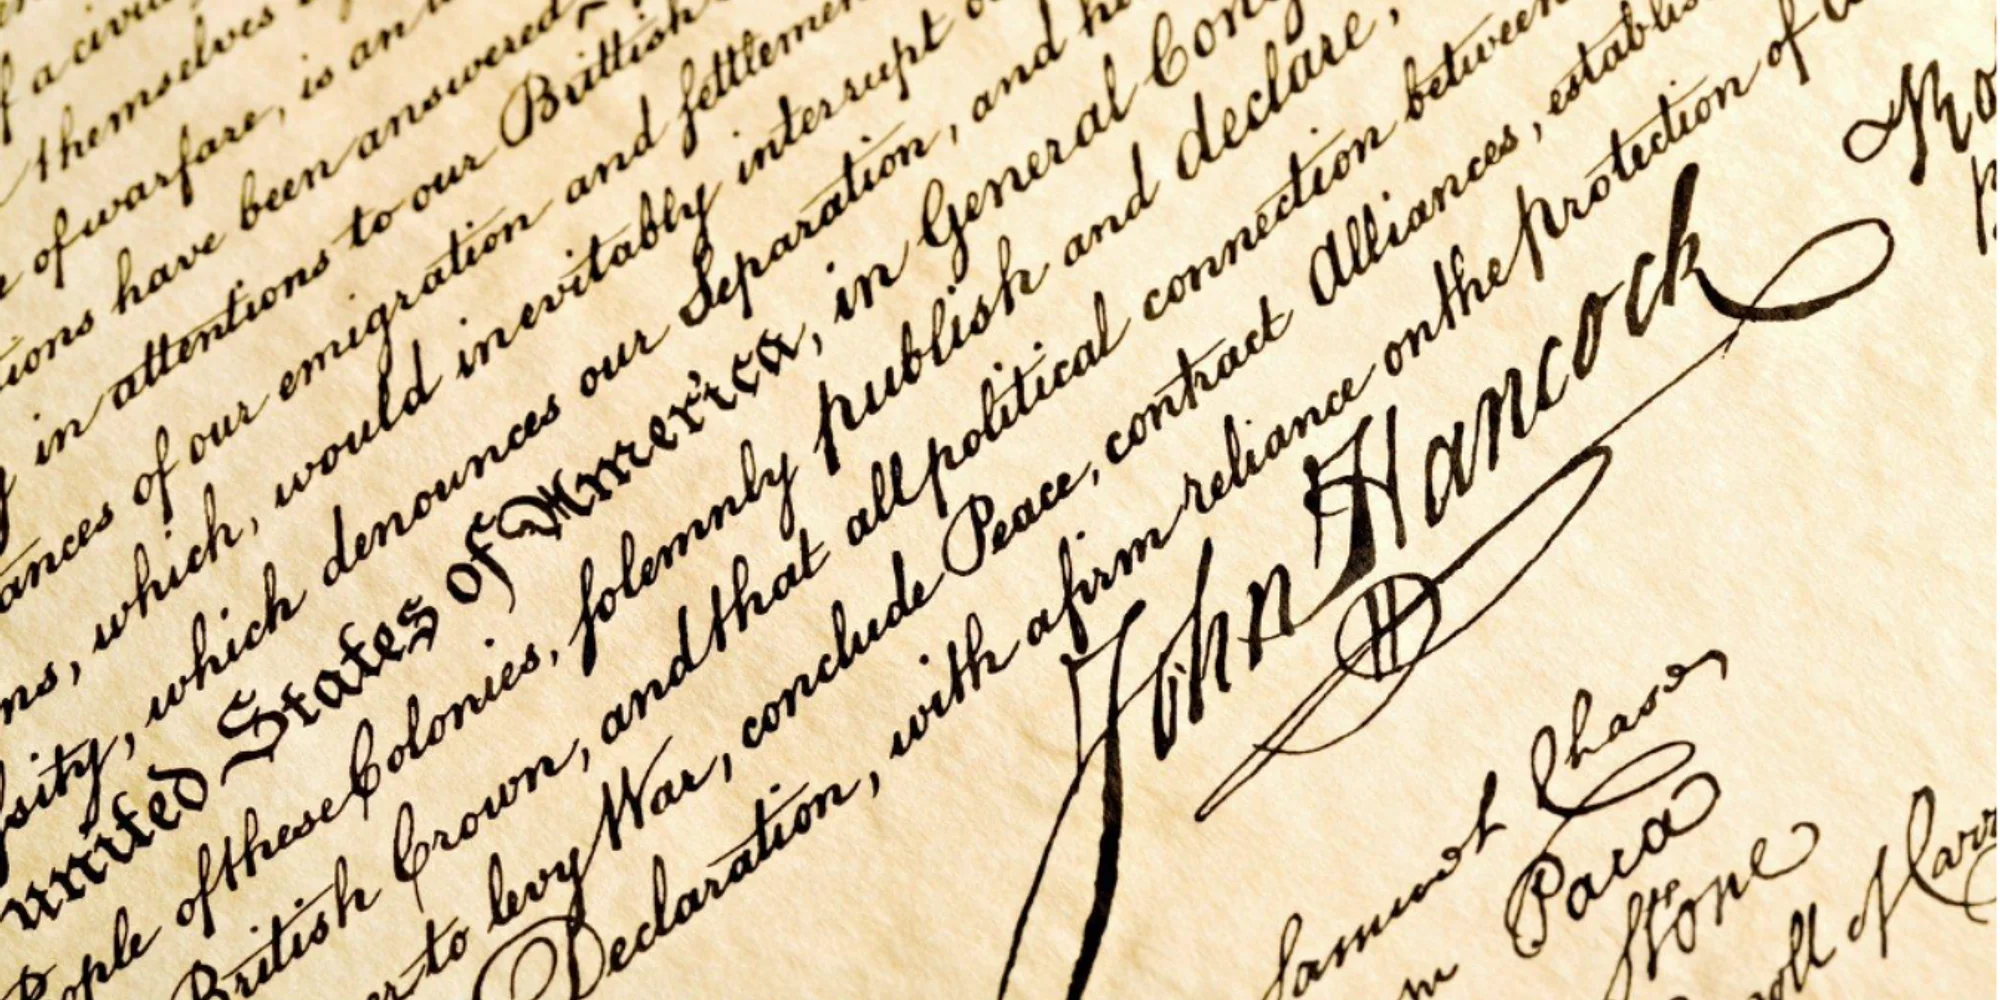 of a civil
themselves
of warfare, is an
tions have been answered
in attentions to our Brittish
ances of our emigration and settlemen
ns, which, would inevitably interrupt
sity, which denounces our Separation, and
united States of America, in General Con
people of these Colonies, solemnly publish and declare,
British Crown, and that all political connection between
er to levy War, conclude Peace, contract Alliances, establis
Declaration, with a firm reliance on the protection of
John Hancock
Samuel Chase
Wm Paca
Thos Stone
oll of Carr
Ro